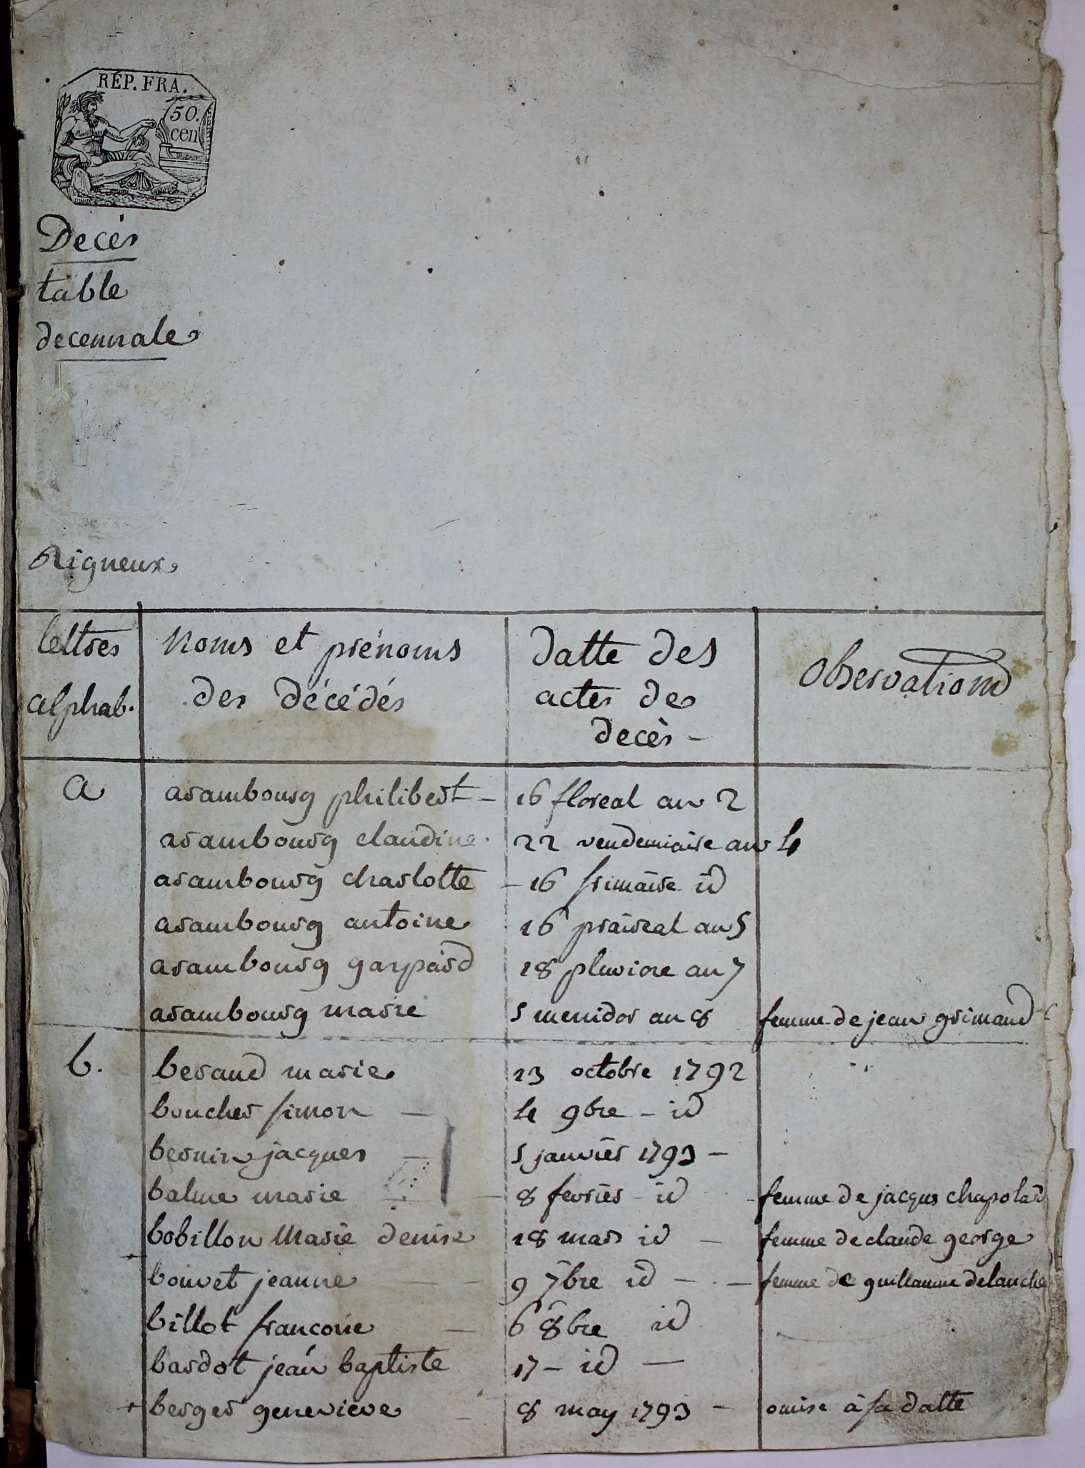 RÉP. FRA.
50.
cen
Decés
table
decennale
Rigneux
lettres
alphab.
Noms et prénoms
des décédés
datte des
actes de
decès -
observations
a
arambourg philibert - 16 floreal an 2
arambourg claudine. 22 vendemiaire an 4
arambourg charlotte - 16 frimaire id
arambourg antoine 16 praireal an 5
arambourg gaspard 18 pluviose an 7
arambourg marie 5 messidor an 8 femme de jean grimaud
b.
beraud marie 23 octobre 1792
boucher simon - 4 9bre - id
bernin jacques - 5 janvier 1793 -
balme marie - 8 fevrier - id - femme de jacques chapolard
bobillon Marie denise 18 mars id - femme de claude george
bouvet jeanne - - 9 7bre id - - femme de guillaume delauche
billot francoise - 6 8bre id
bardot jean baptiste 17 - id -
+ berger geneviève - 8 may 1793 - omise à sa datte